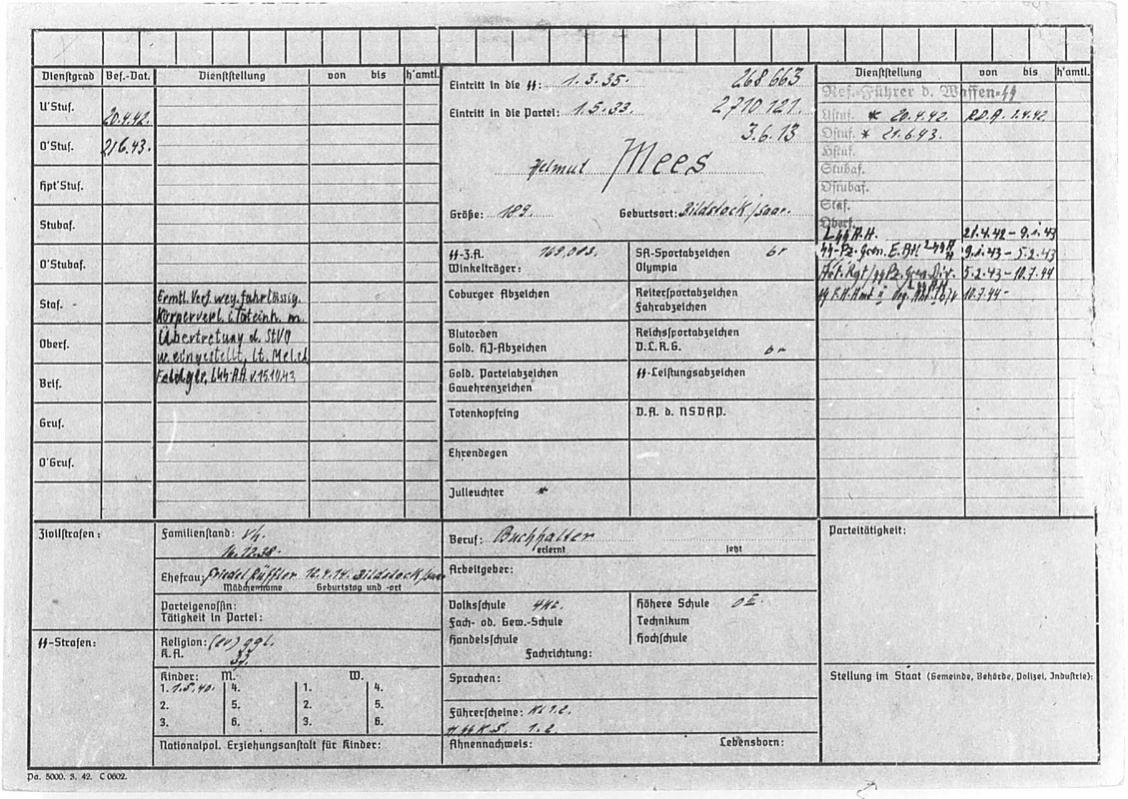 Dienstgrad Bef.-Dat. Dienststellung von bis h'amtl.
U'Stuf. 20.4.42.
O'Stuf. 21.6.43.
Hpt'Stuf.
Stubaf.
O'Stubaf.
Staf.
Ermtl. Verf. weg. fahrlässig.
Körperverl. i. Tateinh. m.
Oberf.
Übertretung d. StVO
w. eingestellt, lt. Meld.
Brif.
Feldger. LSSAH v. 15.10.43
Gruf.
O'Gruf.
Eintritt in die SS: 1.3.35. 268 663
Eintritt in die Partei: 1.5.33. 2710 121.
3.6.13
Helmut Mees
Größe: 189. Geburtsort: Bildstock/Saar.
SS-Z.A. 169,003.
Winkelträger:
Coburger Abzeichen
Blutorden
Gold. HJ-Abzeichen
Gold. Parteiabzeichen
Gauehrenzeichen
Totenkopfring
Ehrendegen
Julleuchter *
SA-Sportabzeichen br
Olympia
Reitersportabzeichen
Fahrabzeichen
Reichssportabzeichen
D.L.R.G. br
SS-Leistungsabzeichen
D.A. d. NSDAP.
Dienststellung von bis h'amtl.
Res.-Führer d. Waffen-SS
Ustuf. * 20.4.42. R.D.A. 1.4.42.
Ostuf. * 21.6.43.
Hstuf.
Stubaf.
Ostubaf.
Staf.
Oberf.
LSSAH. 21.4.42 - 9.1.43
SS-Pz. Gren. E. Btl LSSAH 9.1.43 - 5.2.43
Art. Rgt/SS Pz. Gren. Div. LSSAH 5.2.43 - 10.7.44
SS F.H. Amt 10.7.44 -
Zivilstrafen:
SS-Strafen:
Familienstand: Vh.
16.12.38.
Ehefrau: Friedel 12.4.14. Bildstock/Saar
Mädchenname Geburtstag und -ort
Parteigenossin:
Tätigkeit in Partei:
Religion: (ev) ggl.
K.A. 37.
Kinder: M. W.
1. 1.5.40. 4. 1. 4.
2. 5. 2. 5.
3. 6. 3. 6.
Nationalpol. Erziehungsanstalt für Kinder:
Beruf: Buchhalter
erlernt jetzt
Arbeitgeber:
Volksschule 4 Kl.
Fach- od. Gew.-Schule
Handelsschule
Höhere Schule OE.
Technikum
Hochschule
Fachrichtung:
Sprachen:
Führerscheine: Kl 1.2.
1.2.
Ahnennachweis: Lebensborn:
Parteitätigkeit:
Stellung im Staat (Gemeinde, Behörde, Polizei, Industrie):
Da. 5000. 3. 42. C 0602.